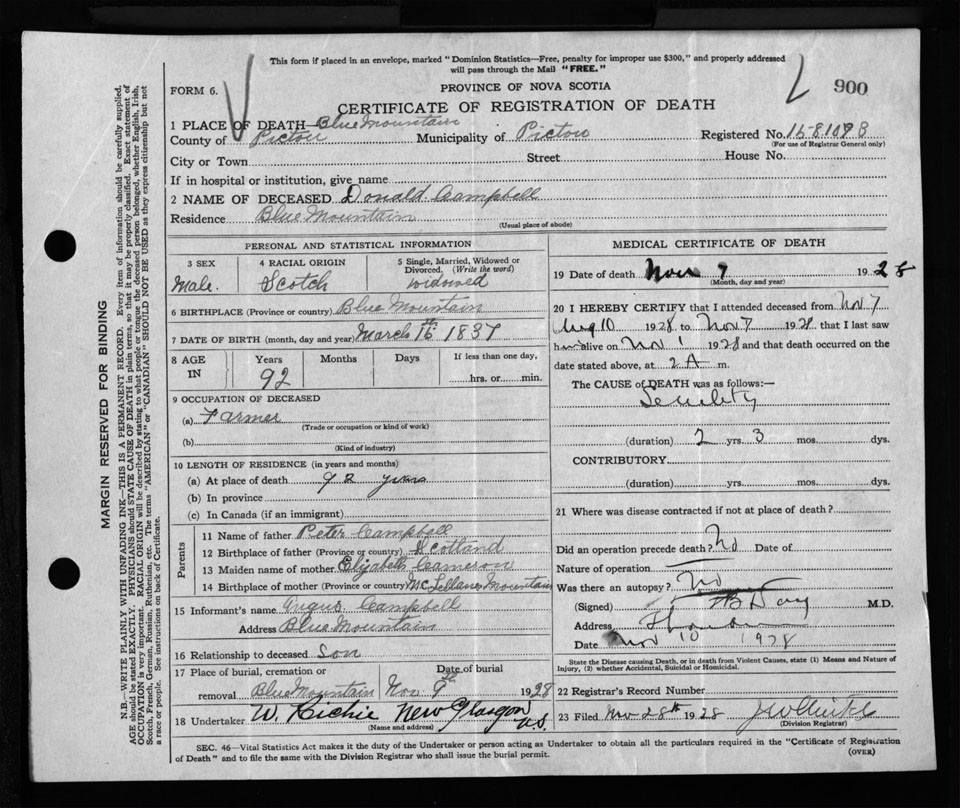 This form if placed in an envelope, marked "Dominion Statistics—Free, penalty for improper use $300," and properly addressed
will pass through the Mail "FREE."
FORM 6.
PROVINCE OF NOVA SCOTIA
900
CERTIFICATE OF REGISTRATION OF DEATH
1 PLACE OF DEATH—Blue Mountain
County of Pictou Municipality of Pictou Registered No.
(For use of Registrar General only)
City or Town Street House No.
If in hospital or institution, give name
2 NAME OF DECEASED Donald Campbell
Residence Blue Mountain
(Usual place of abode)
MARGIN RESERVED FOR BINDING
N.B.—WRITE PLAINLY WITH UNFADING INK—THIS IS A PERMANENT RECORD. Every item of information should be carefully supplied.
AGE should be stated EXACTLY. PHYSICIANS should STATE CAUSE OF DEATH in plain terms, so that it may be properly classified. Exact statement of
OCCUPATION is very important. RACIAL ORIGIN will be described by stating to what people or tongue the deceased person belonged, whether English, Irish,
Scotch, French, German, Russian, Ruthenian, etc. The terms "AMERICAN" or "CANADIAN" SHOULD NOT BE USED as they express citizenship but not
a race or people. See instructions on back of Certificate.
PERSONAL AND STATISTICAL INFORMATION
3 SEX
Male.
4 RACIAL ORIGIN
Scotch
5 Single, Married, Widowed or
Divorced. (Write the word)
widowed
6 BIRTHPLACE (Province or country) Blue Mountain
7 DATE OF BIRTH (month, day and year) March 16th 1837
8 AGE
IN
Years
92
Months
Days
If less than one day,
hrs. or min.
9 OCCUPATION OF DECEASED
(a) Farmer
(Trade or occupation or kind of work)
(b)
(Kind of industry)
10 LENGTH OF RESIDENCE (in years and months)
(a) At place of death 92 years
(b) In province
(c) In Canada (if an immigrant)
Parents
11 Name of father Peter Campbell
12 Birthplace of father (Province or country) Scotland
13 Maiden name of mother Elizabeth Cameron
14 Birthplace of mother (Province or country) McLellans Mountain
15 Informant's name Angus Campbell
Address Blue Mountain
16 Relationship to deceased son
17 Place of burial, cremation or Date of burial
removal Blue Mountain Nov. 9th 1928
18 Undertaker W. Richie New Glasgow N.S.
(Name and address)
MEDICAL CERTIFICATE OF DEATH
19 Date of death Nov 7 1928
(Month, day and year)
20 I HEREBY CERTIFY that I attended deceased from Nov 7
Aug 10 1928 to Nov 7 1928 that I last saw
him alive on Nov 1 1928 and that death occurred on the
date stated above, at 2 A m.
The CAUSE of DEATH was as follows:—
Senility
(duration) 2 yrs. 3 mos. dys.
CONTRIBUTORY
(duration) yrs. mos. dys.
21 Where was disease contracted if not at place of death?
Did an operation precede death? No Date of
Nature of operation
Was there an autopsy? no
(Signed) Day M.D.
Address
Date Nov 10 1928
State the Disease causing Death, or in death from Violent Causes, state (1) Means and Nature of
Injury, (2) whether Accidental, Suicidal or Homicidal.
22 Registrar's Record Number
23 Filed Nov 28th 1928
(Division Registrar)
SEC. 46—Vital Statistics Act makes it the duty of the Undertaker or person acting as Undertaker to obtain all the particulars required in the "Certificate of Registration
of Death" and to file the same with the Division Registrar who shall issue the burial permit. (OVER)